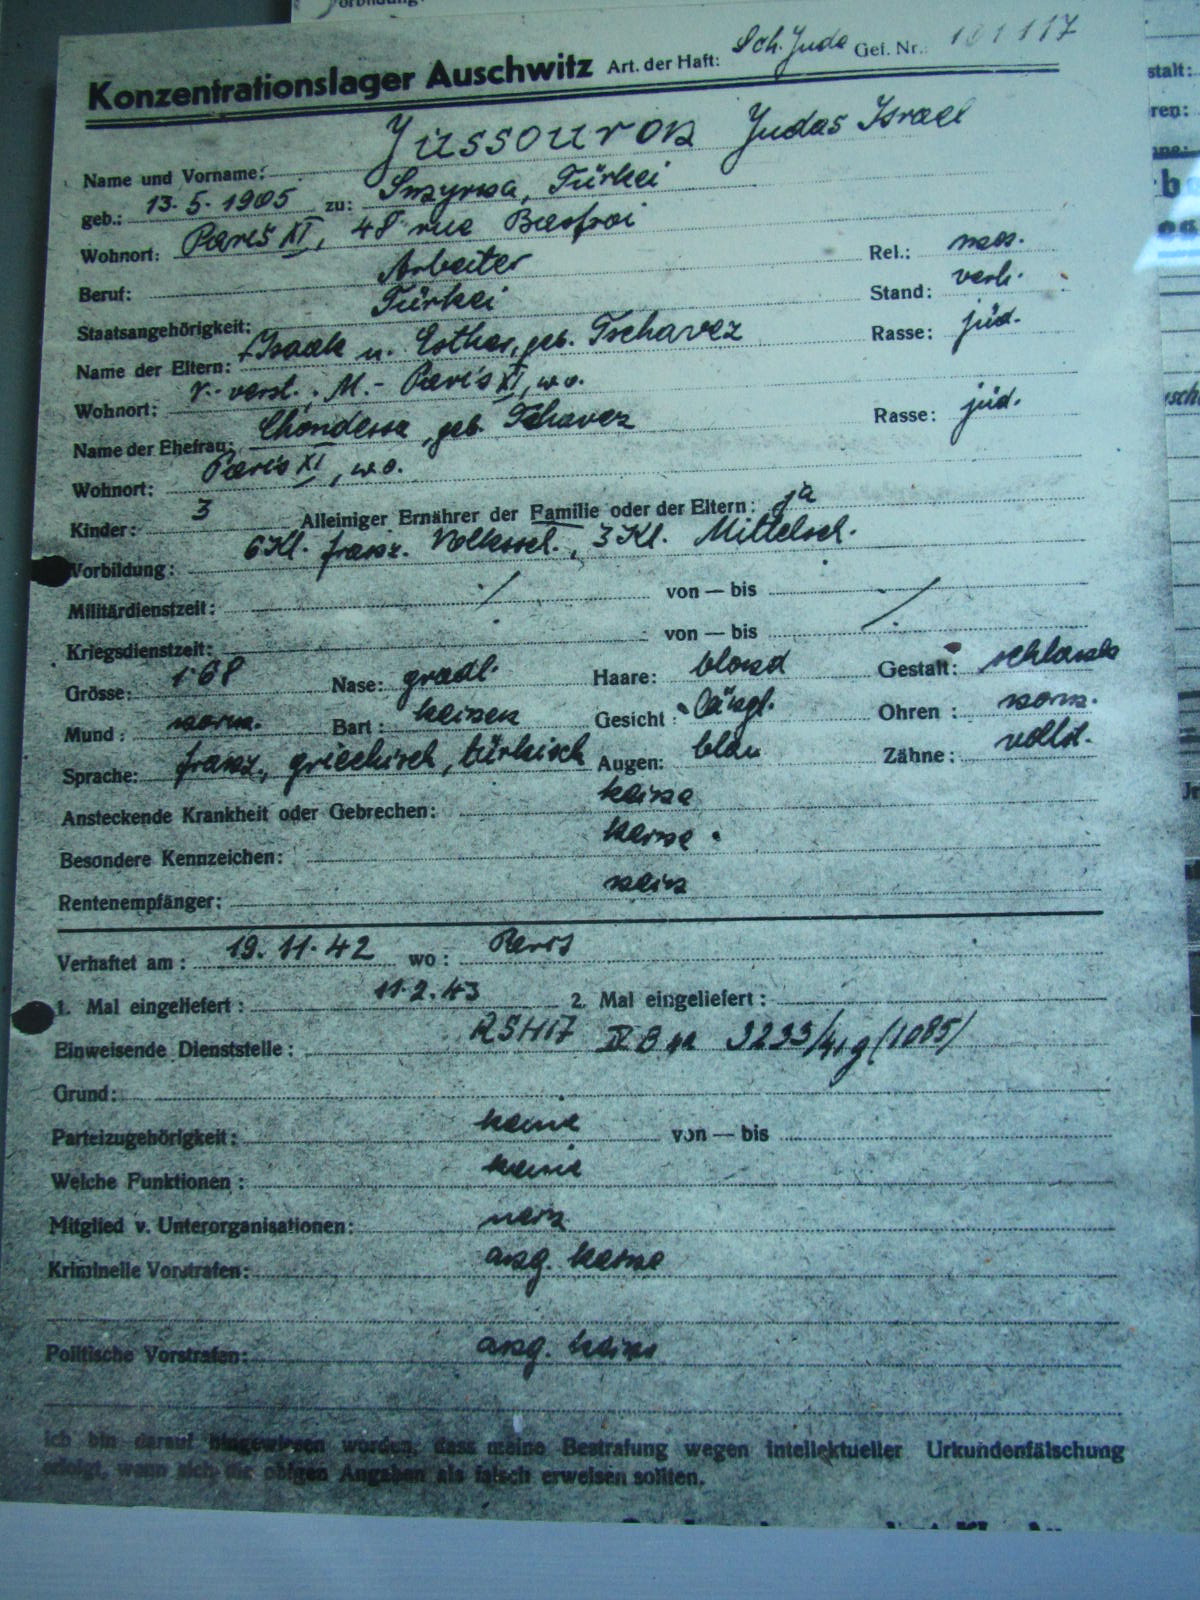 Konzentrationslager Auschwitz Art. der Haft: Sch. Jude Gef. Nr.: 101117
Name und Vorname: Jussouron Judas Israel
geb.: 13.5.1905 zu: Smyrna, Türkei
Wohnort: Paris XI, 48 rue Basfroi
Beruf: Arbeiter Rel.: mos.
Staatsangehörigkeit: Türkei Stand: verh.
Name der Eltern: Isaak u. Esther, geb. Tschavez Rasse: jüd.
Wohnort: V.- verst., M.- Paris XI, w.o.
Name der Ehefrau: geb. Tschavez Rasse: jüd.
Wohnort: Paris XI, w.o.
Kinder: 3 Alleiniger Ernährer der Familie oder der Eltern: ja
Vorbildung: 6 Kl. franz. Volkssch., 3 Kl. Mittelsch.
Militärdienstzeit: / von — bis /
Kriegsdienstzeit: von — bis
Grösse: 168 Nase: gradl. Haare: blond Gestalt: schlank
Mund: norm. Bart: keinen Gesicht: längl. Ohren: norm.
Sprache: franz., griechisch, türkisch Augen: blau Zähne: vollst.
Ansteckende Krankheit oder Gebrechen: keine
Besondere Kennzeichen: keine.
Rentenempfänger: nein
Verhaftet am: 19.11.42 wo: Paris
1. Mal eingeliefert: 11.2.43 2. Mal eingeliefert:
Einweisende Dienststelle: RSHA IV B 4a 3233/41g (1085/
Grund:
Parteizugehörigkeit: keine von — bis
Welche Funktionen: keine
Mitglied v. Unterorganisationen: nein
Kriminelle Vorstrafen: ang. keine
Politische Vorstrafen: ang. keine
Ich bin darauf hingewiesen worden, dass meine Bestrafung wegen intellektueller Urkundenfälschung
erfolgt, wenn sich die obigen Angaben als falsch erweisen sollten.